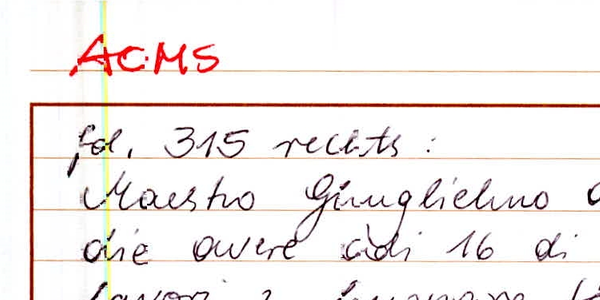 ACMS
fol. 315 rechts :
Maestro Giuglielmo
die avere adi 16 di
lavori